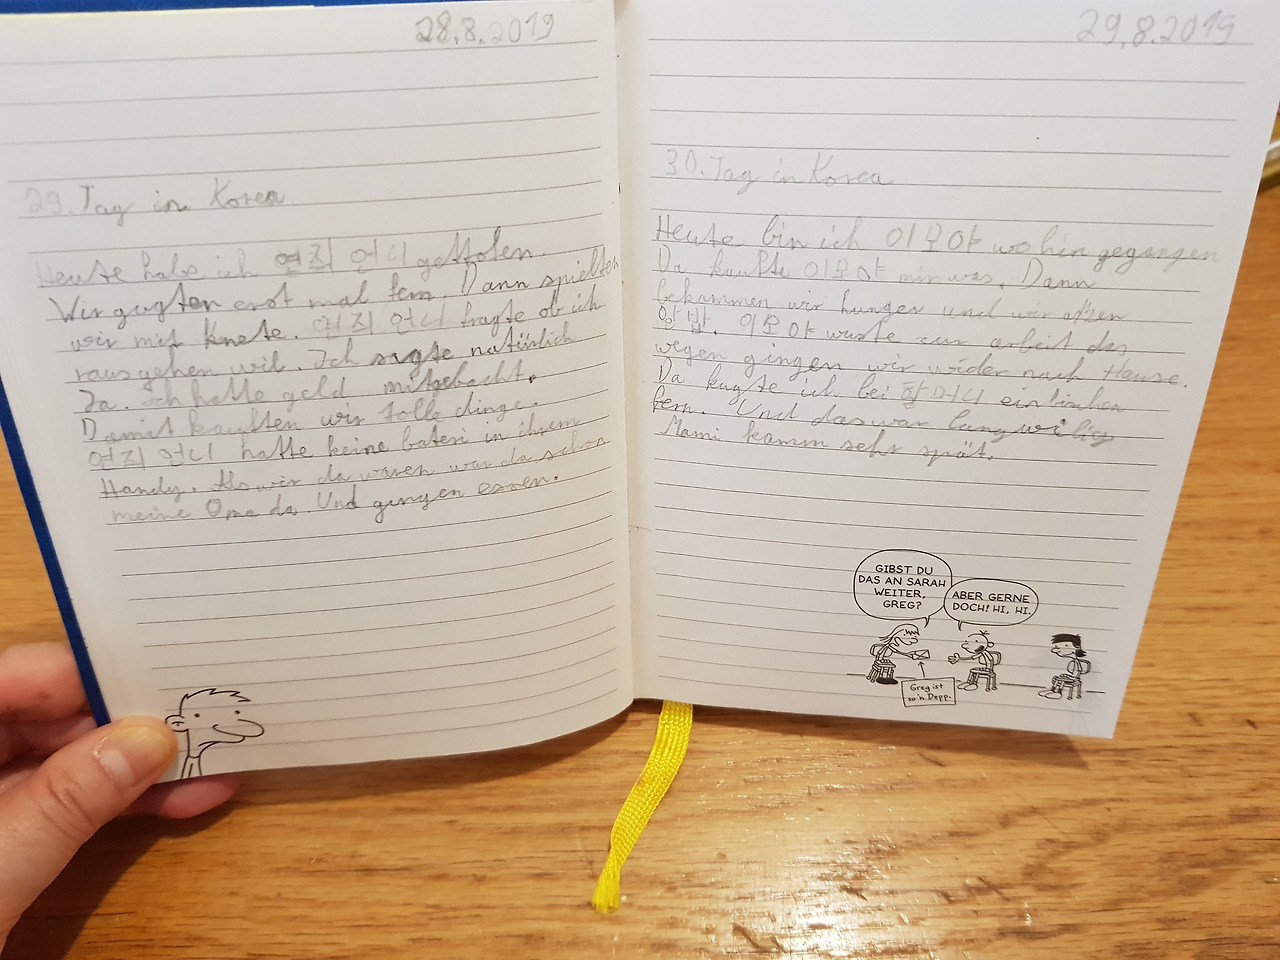 28.8.2019
29. Tag in Korea
Heute habe ich 연지 언니 gettofen.
Wir gugten erst mal fern. Dann spielten
wir mit Knete. 연지 언니 fragte ob ich
rausgehen wil. Ich sagte natürlich
Ja. Ich hatte geld mitgebacht.
Damit kauften wir tolle dinge.
연지 언니 hatte keine bateri in ihrem
Handy. Als wir da waren war da schon
meine Oma da. Und gingen essen.
29.8.2019
30. Tag in Korea
Heute bin ich 이모야 wo hin gegangen
Da kaufte 이모야 mir was. Dann
bekammen wir hunger und wir aßen
이모야 zur arbeit des
wegen gingen wir wider nach Hause.
Da kugte ich bei 할머니 ein bischen
fern. Und das war langwilig
Mami kamm sehr spät.
GIBST DU
DAS AN SARAH
WEITER,
GREG?
ABER GERNE
DOCH! HI, HI.
Greg ist
so'n Depp.